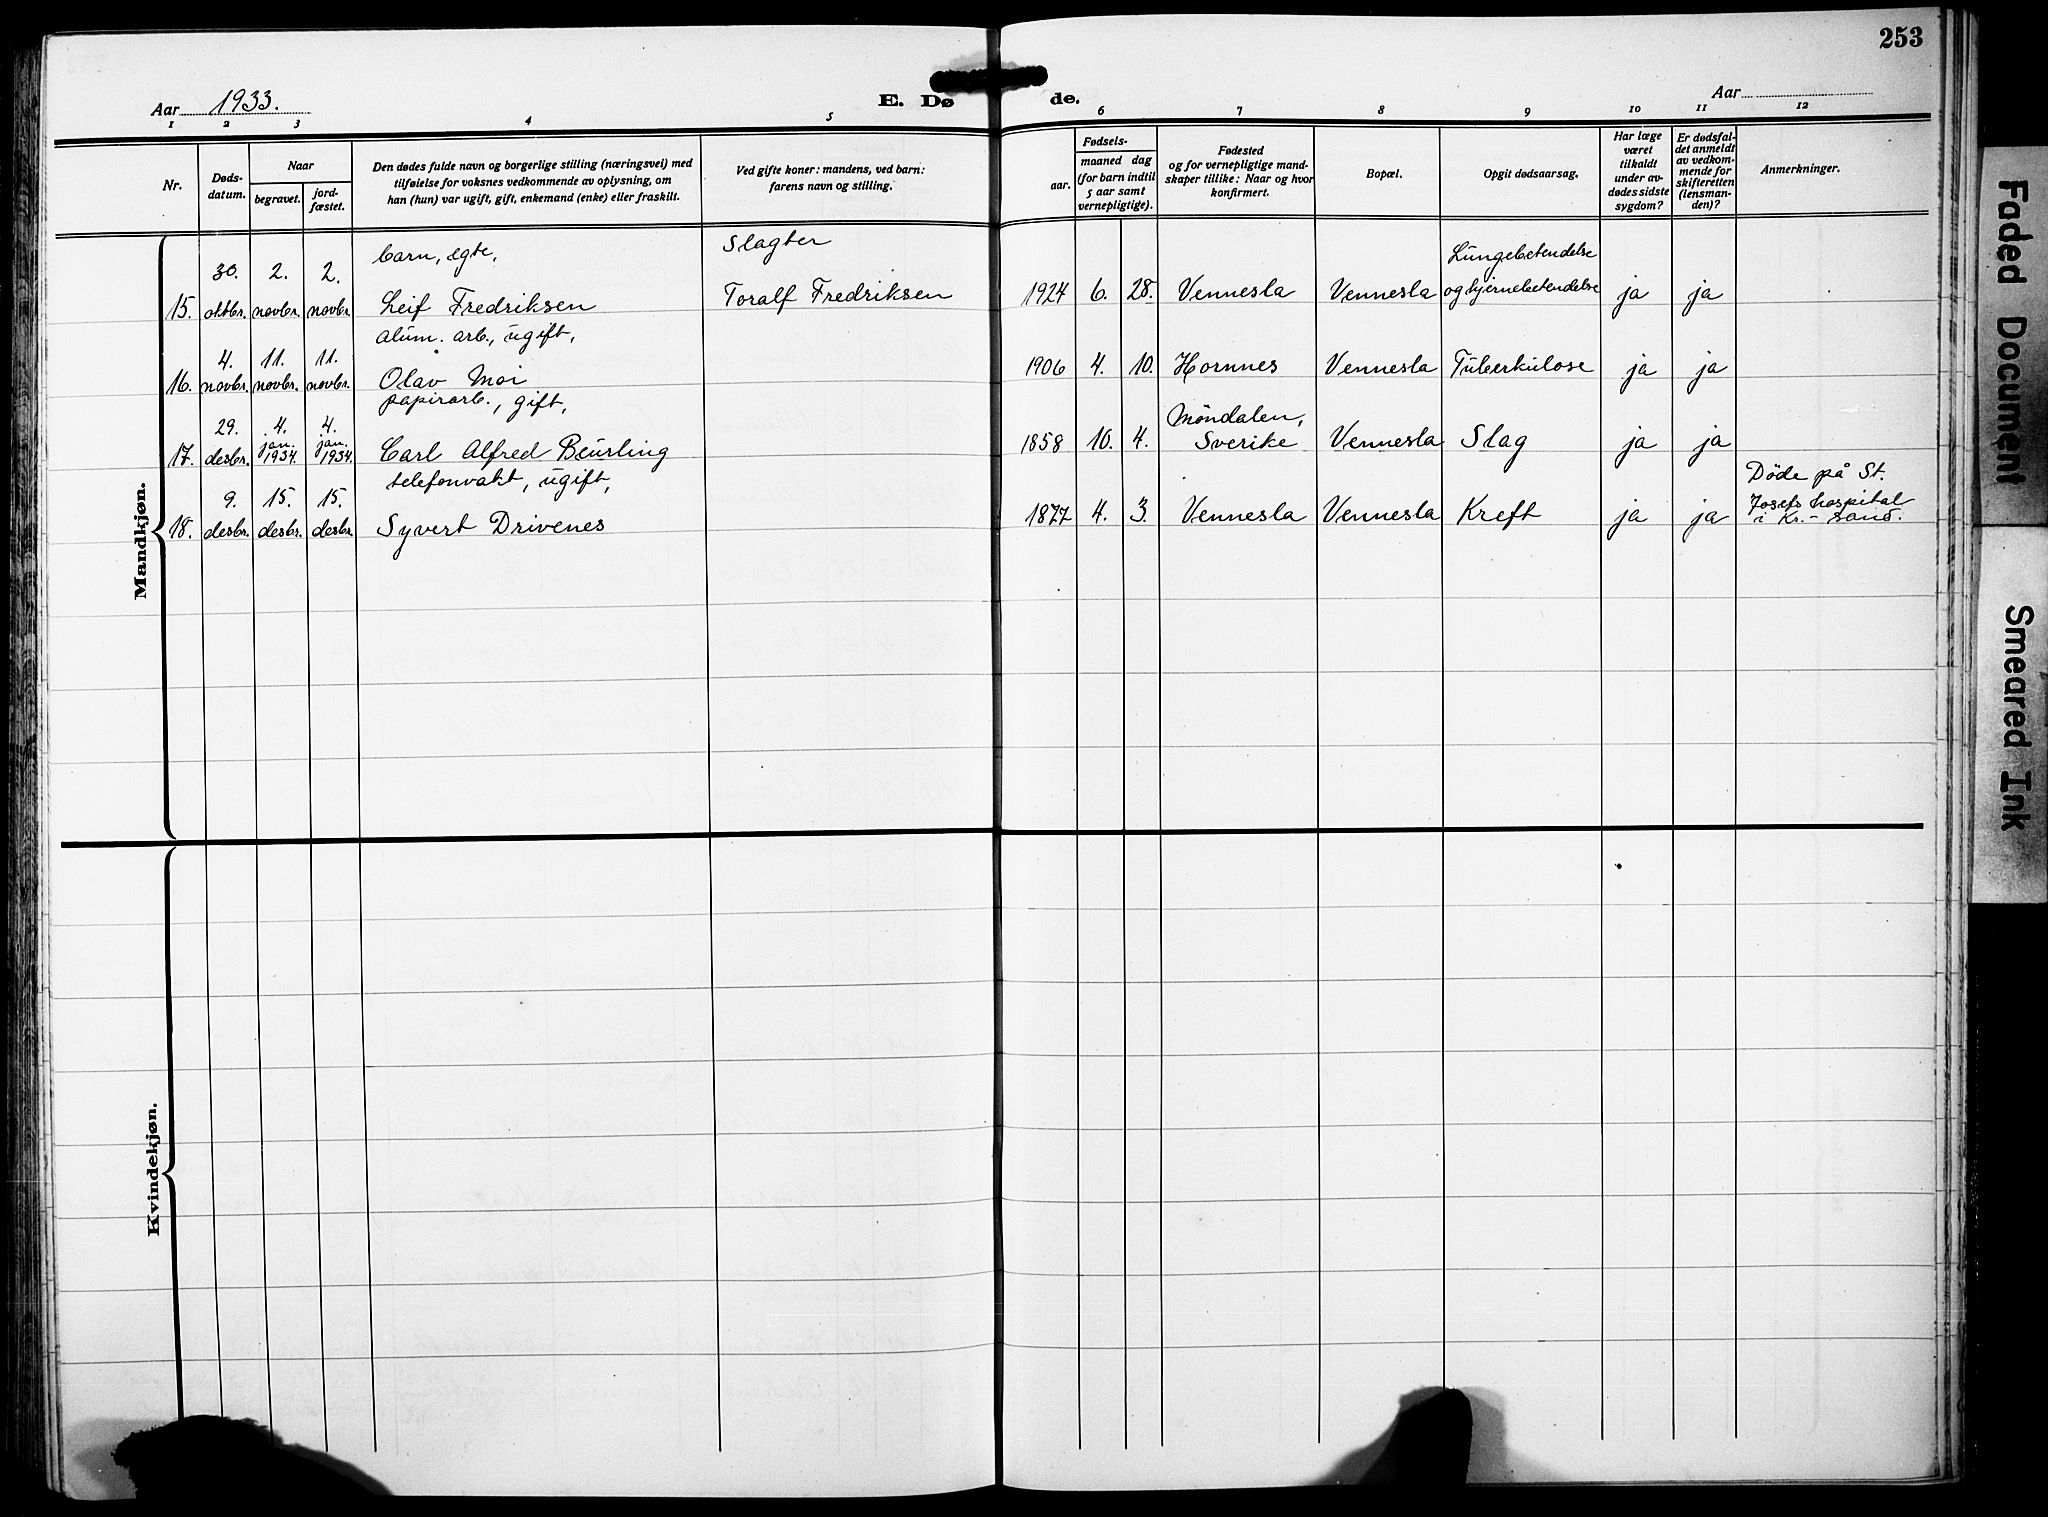 253
Aar 1933.
E. Dø de.
Aar
1 2 3 4 5 6 7 8 9 10 11 12
Nr.
Døds-
datum.
Naar
begravet.
jord-
fæstet.
Den dødes fulde navn og borgerlige stilling (næringsvei) med
tilføielse for voksnes vedkommende av oplysning, om
han (hun) var ugift, gift, enkemand (enke) eller fraskilt.
Ved gifte koner: mandens, ved barn:
farens navn og stilling.
Fødsels-
aar.
maaned dag
(for barn indtil
5 aar samt
vernepligtige).
Fødested
og for vernepligtige mand-
skaper tillike: Naar og hvor
konfirmert.
Bopæl.
Opgit dødsaarsag.
Har læge
været
tilkaldt
under av-
dødes sidste
sygdom?
Er dødsfal-
det anmeldt
av vedkom-
mende for
skifteretten
(lensman-
den)?
Anmerkninger.
Mandkjøn.
barn, egte, Slagter Lungebetendelse
30. 2. 2.
15. oktbr. novbr. novbr. Leif Fredriksen Toralf Fredriksen 1924 6. 28. Vennesla Vennesla og hjernebetendelse ja ja
alum. arb., ugift,
4. 11. 11.
16. novbr. novbr. novbr. Olav Moi 1906 4. 10. Hornnes Vennesla Tuberkulose ja ja
papirarb., gift, Möndalen,
29. 4. 4.
jan. jan.
17. desbr. 1934. 1934. Carl Alfred Beurling 1858 10. 4. Sverike Vennesla Slag ja ja
telefonvakt, ugift, Døde på St.
9. 15. 15. Josefs hospital
18. desbr. desbr. desbr. Syvert Drivenes 1877 4. 3. Vennesla Vennesla Kreft ja ja i Kr.-sand.
Kvindekjøn.
Faded Document
Smeared Ink